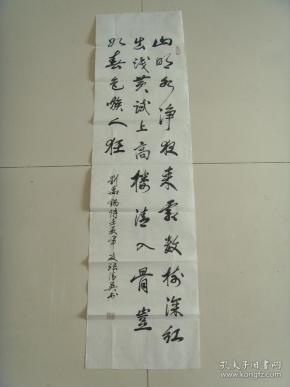 山明水净夜来霜数树深红
出浅黄试上高楼清入骨岂
如春色嗾人狂
刘禹锡诗
孔夫子旧书网